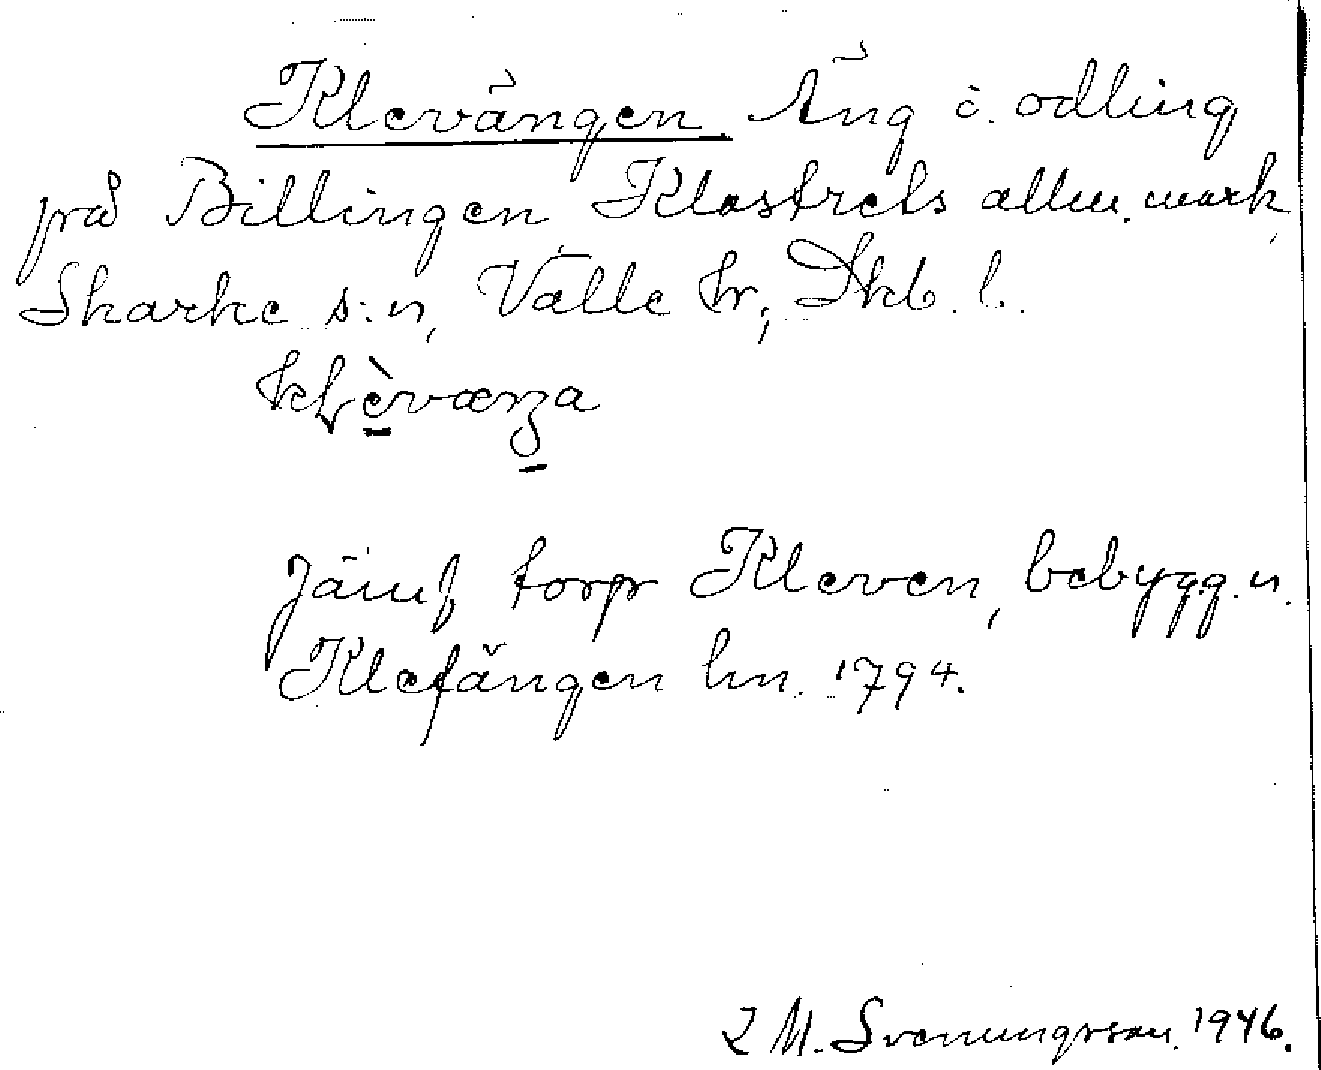 Klevängen. Äng o. odling
på Billingen Klostrets allm. mark,
Skarke s:n, Valle hr, Skb. l.
Jämf torp Kleven, bebygg.n.
Klefängen lm. 1794.
M. Svenungsson. 1946.